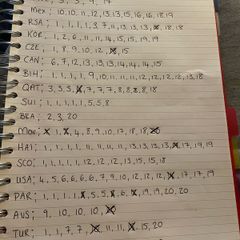 Mex: 10, 10, 11, 12, 13, 13, 15, 16, 16, 18, 19
RSA: 1, 1, 1, 1, 3, 7, 11, 13, 13, 13, 18
KOR: 1, 2, 6, 11, 11, 14, 15, 15, 19, 19
CZE: 1, 8, 9, 10, 12, 15
CAN: 6, 7, 12, 13, 13, 13, 14, 14, 14, 15
BIH: 1, 1, 1, 1, 9, 10, 10, 11, 11, 12, 12, 12, 12, 13, 18
QAT: 3, 5, 5, 7, 7, 7, 8, 8, 18
SUI: 1, 1, 1, 1, 5, 5, 8
BRA: 2, 3, 20
MOR: 1, 4, 8, 9, 10, 17, 18, 18
HAI: 1, 1, 1, 1, 1, 11, 11, 11, 13, 13, 13, 17, 19, 19
SCO: 1, 1, 1, 1, 12, 12, 12, 13, 15, 15, 18
USA: 4, 5, 6, 6, 6, 7, 9, 10, 12, 12, 12, 17, 17, 19
PAR: 1, 1, 1, 1, 5, 5, 6, 19, 19, 20, 20
AUS: 9, 10, 10, 10
TUR: 1, 1, 7, 7, 11, 11, 15, 20